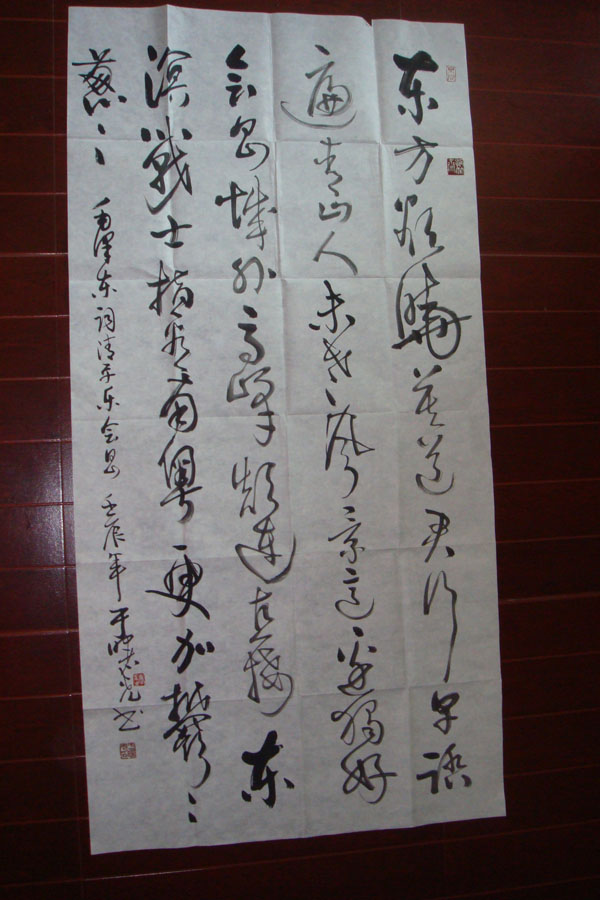 东方欲晓莫道君行早踏
遍青山人未老风景这边独好
会昌城外高峰颠连直接东
溟战士指看南粤更加鬱々
葱々 毛泽东词清平乐会昌 壬辰年 书